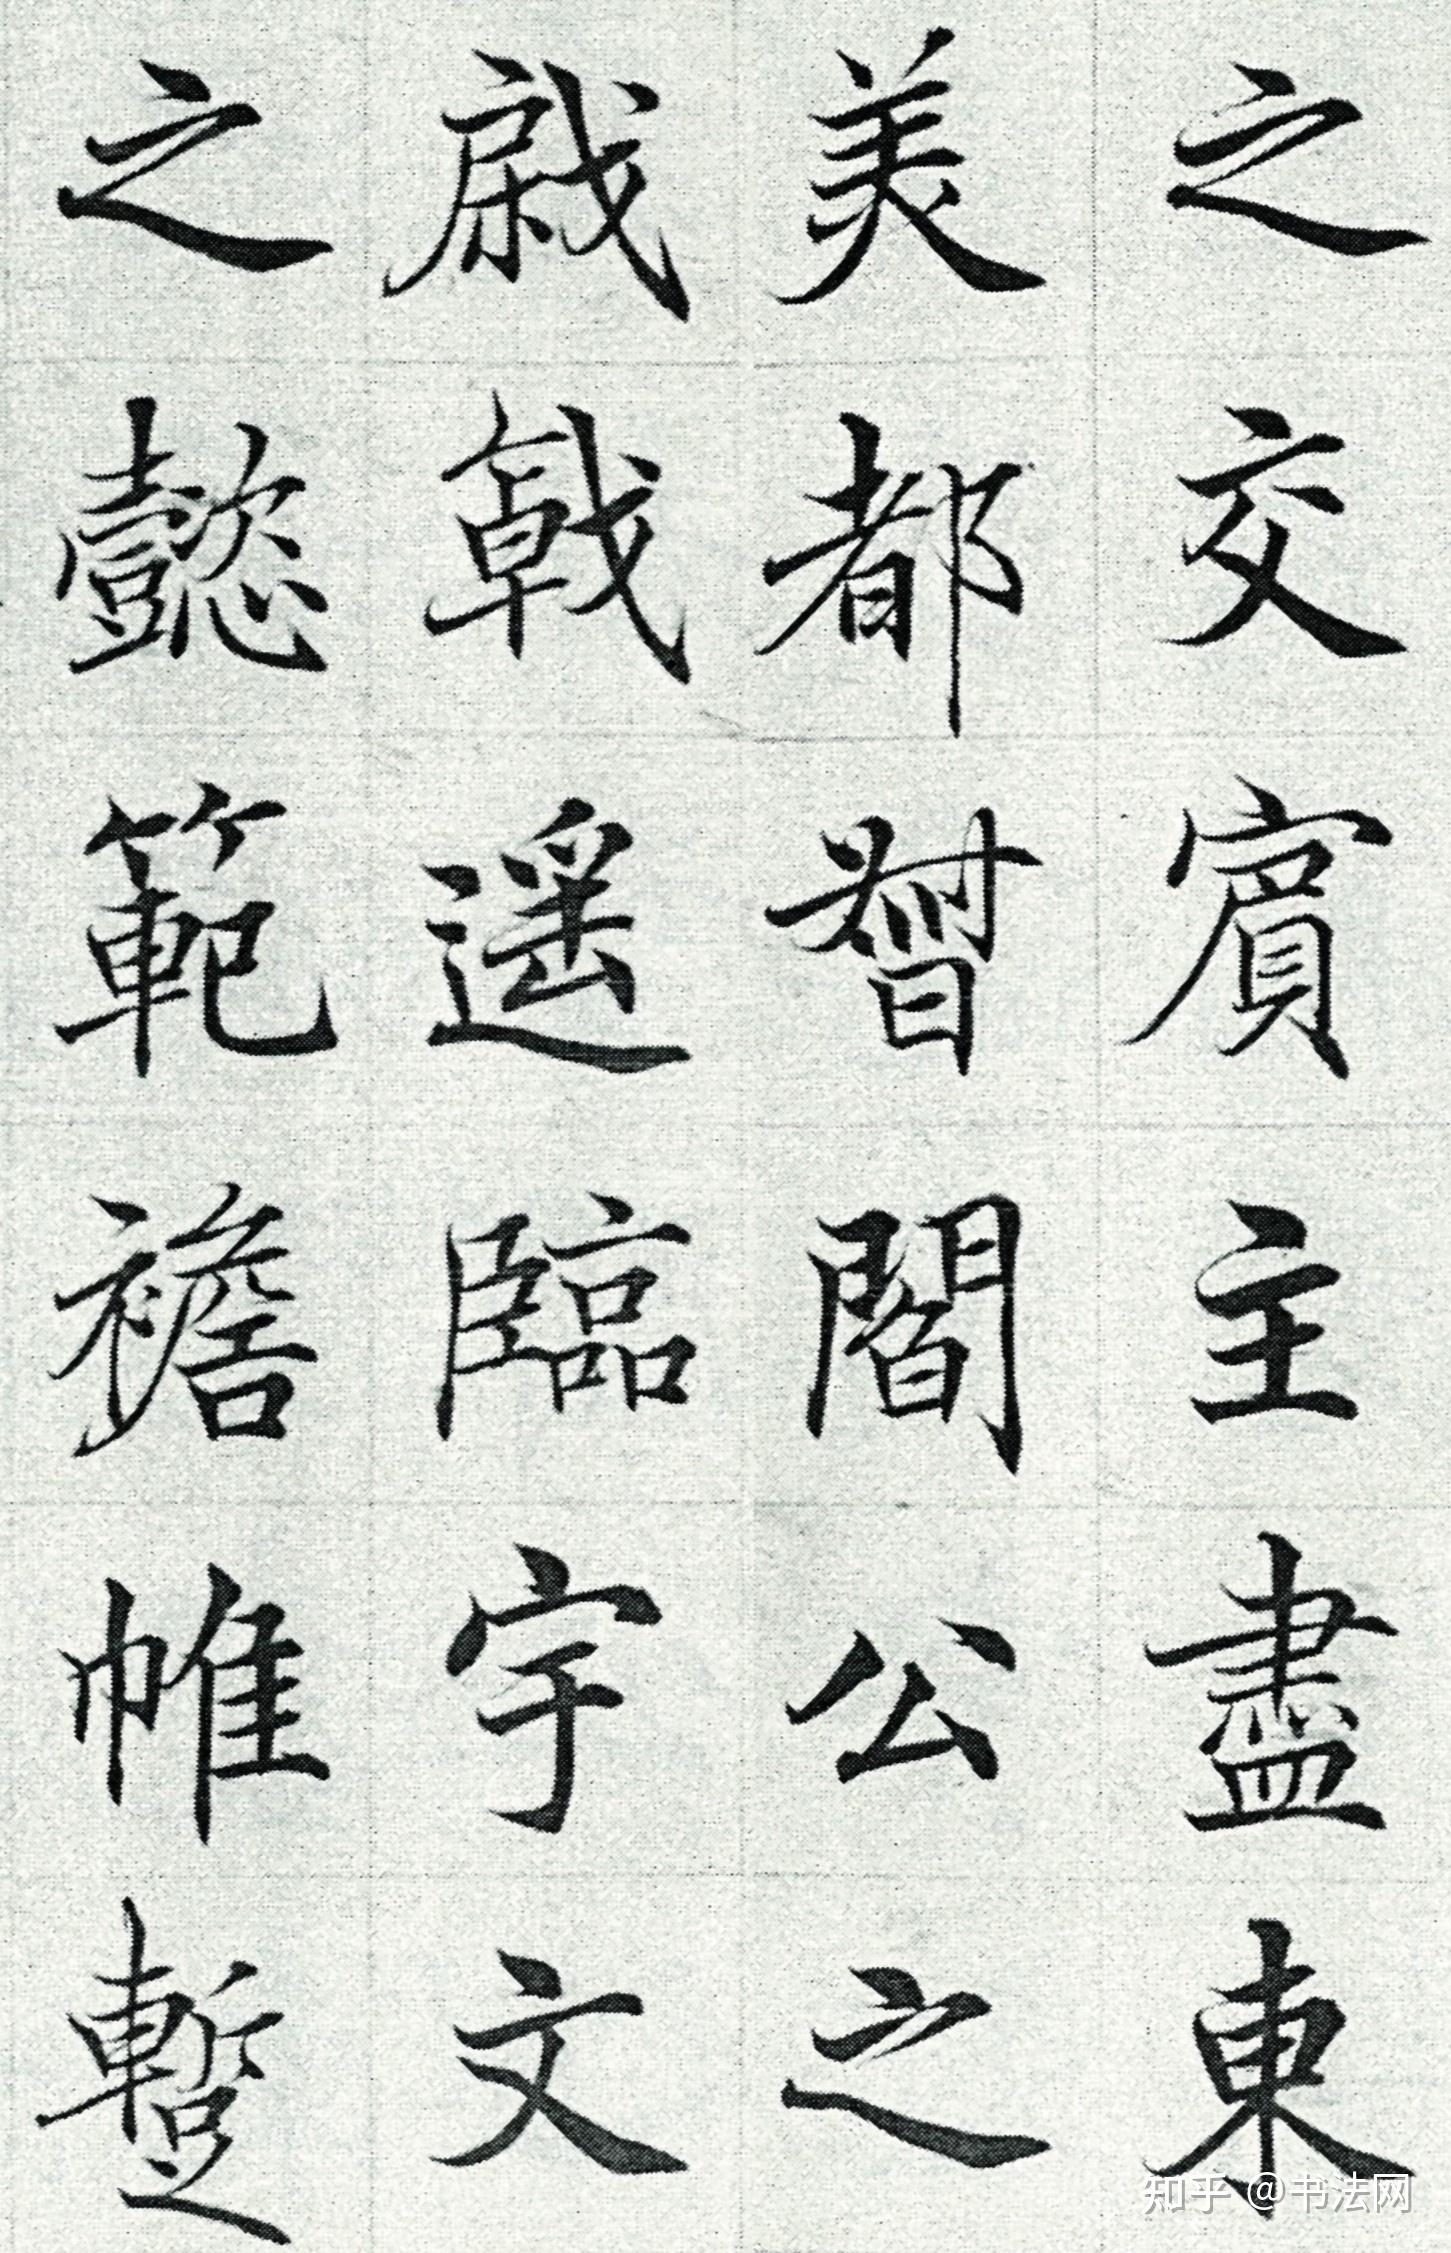 之交賓主盡東
美都督閻公之
戚戟遥臨宇文
之懿範襜帷暫
知乎 @书法网